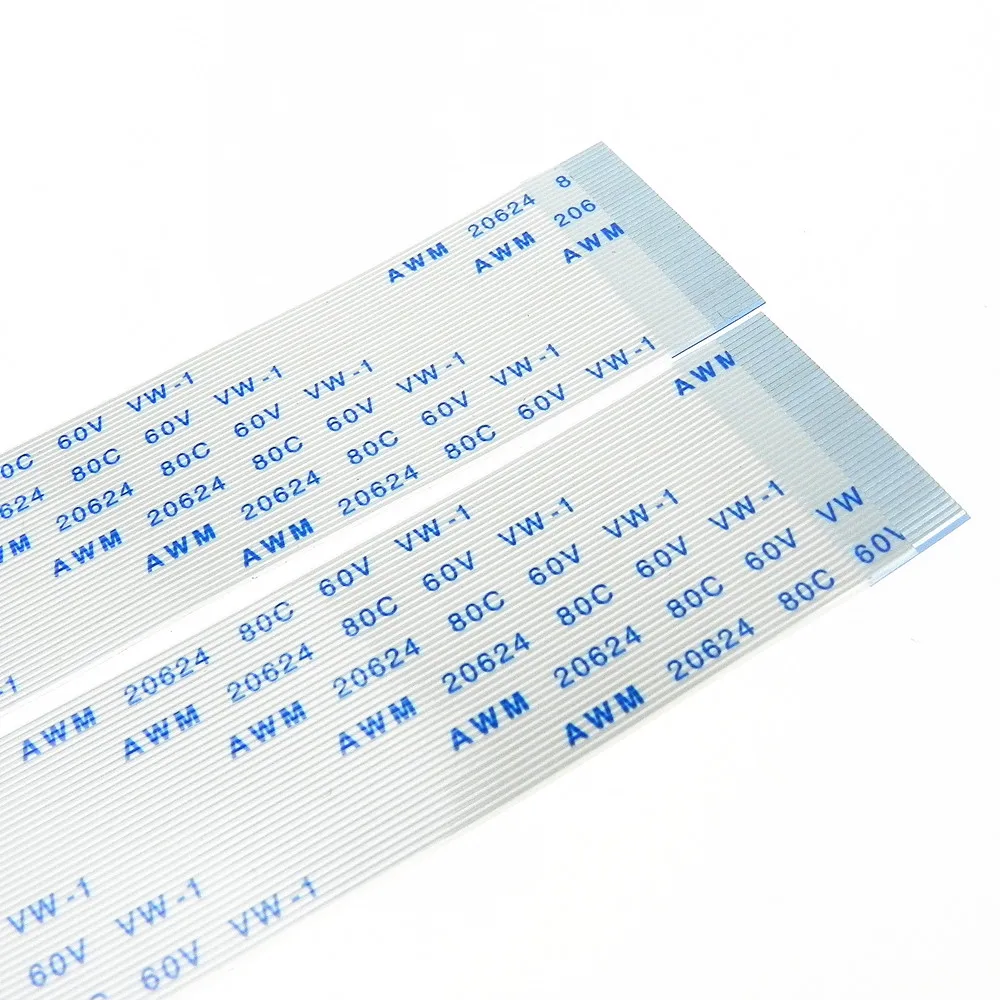 AWM 20624 8
AWM 206
AWM
60V VW-1
80C 60V VW-1
20624 80C 60V VW-1
AWM 20624 80C 60V VW-1
AWM 20624 80C 60V VW-1
AWM 20624 80C 60V VW-1
AWM
AWM 20624 80C 60V VW-1
AWM 20624 80C 60V VW-1
AWM 20624 80C 60V VW-1
AWM 20624 80C 60V VW-1
AWM 20624 80C 60V VW
AWM 20624 80C 60V
VW-1
60V VW-1
60V VW-1